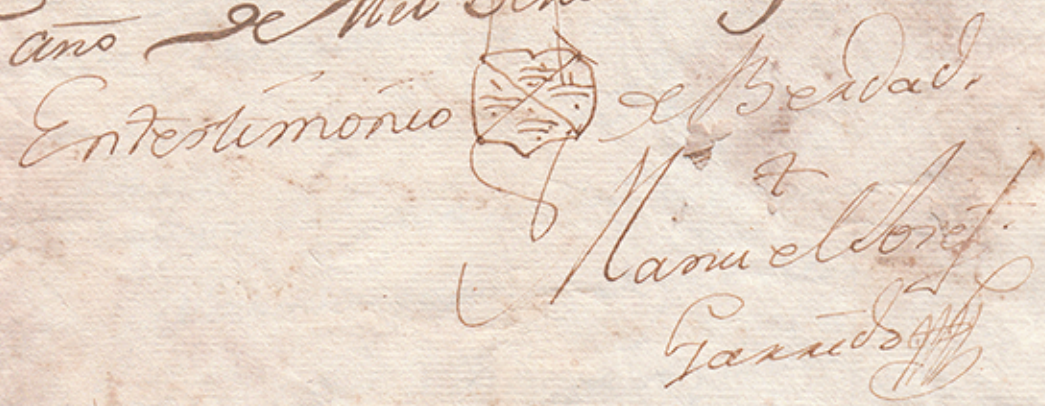 año de Mil
En testimonio de Berdad.
Manuel Joseph
Garrido